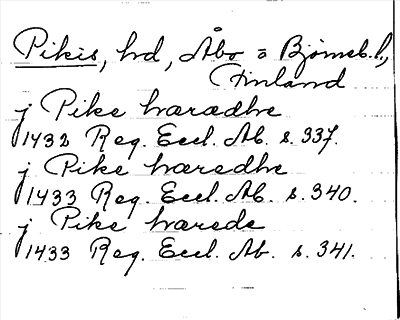 Pikis, hd, Åbo o Björneb. l.,
Finland
j Pike hæradhe
1432 Reg. Eccl. Ab. s. 337.
j Pike hæredhe
1433 Reg. Eccl. Ab. s. 340.
j Pike hærede
1433 Reg. Eccl. Ab. s. 341.